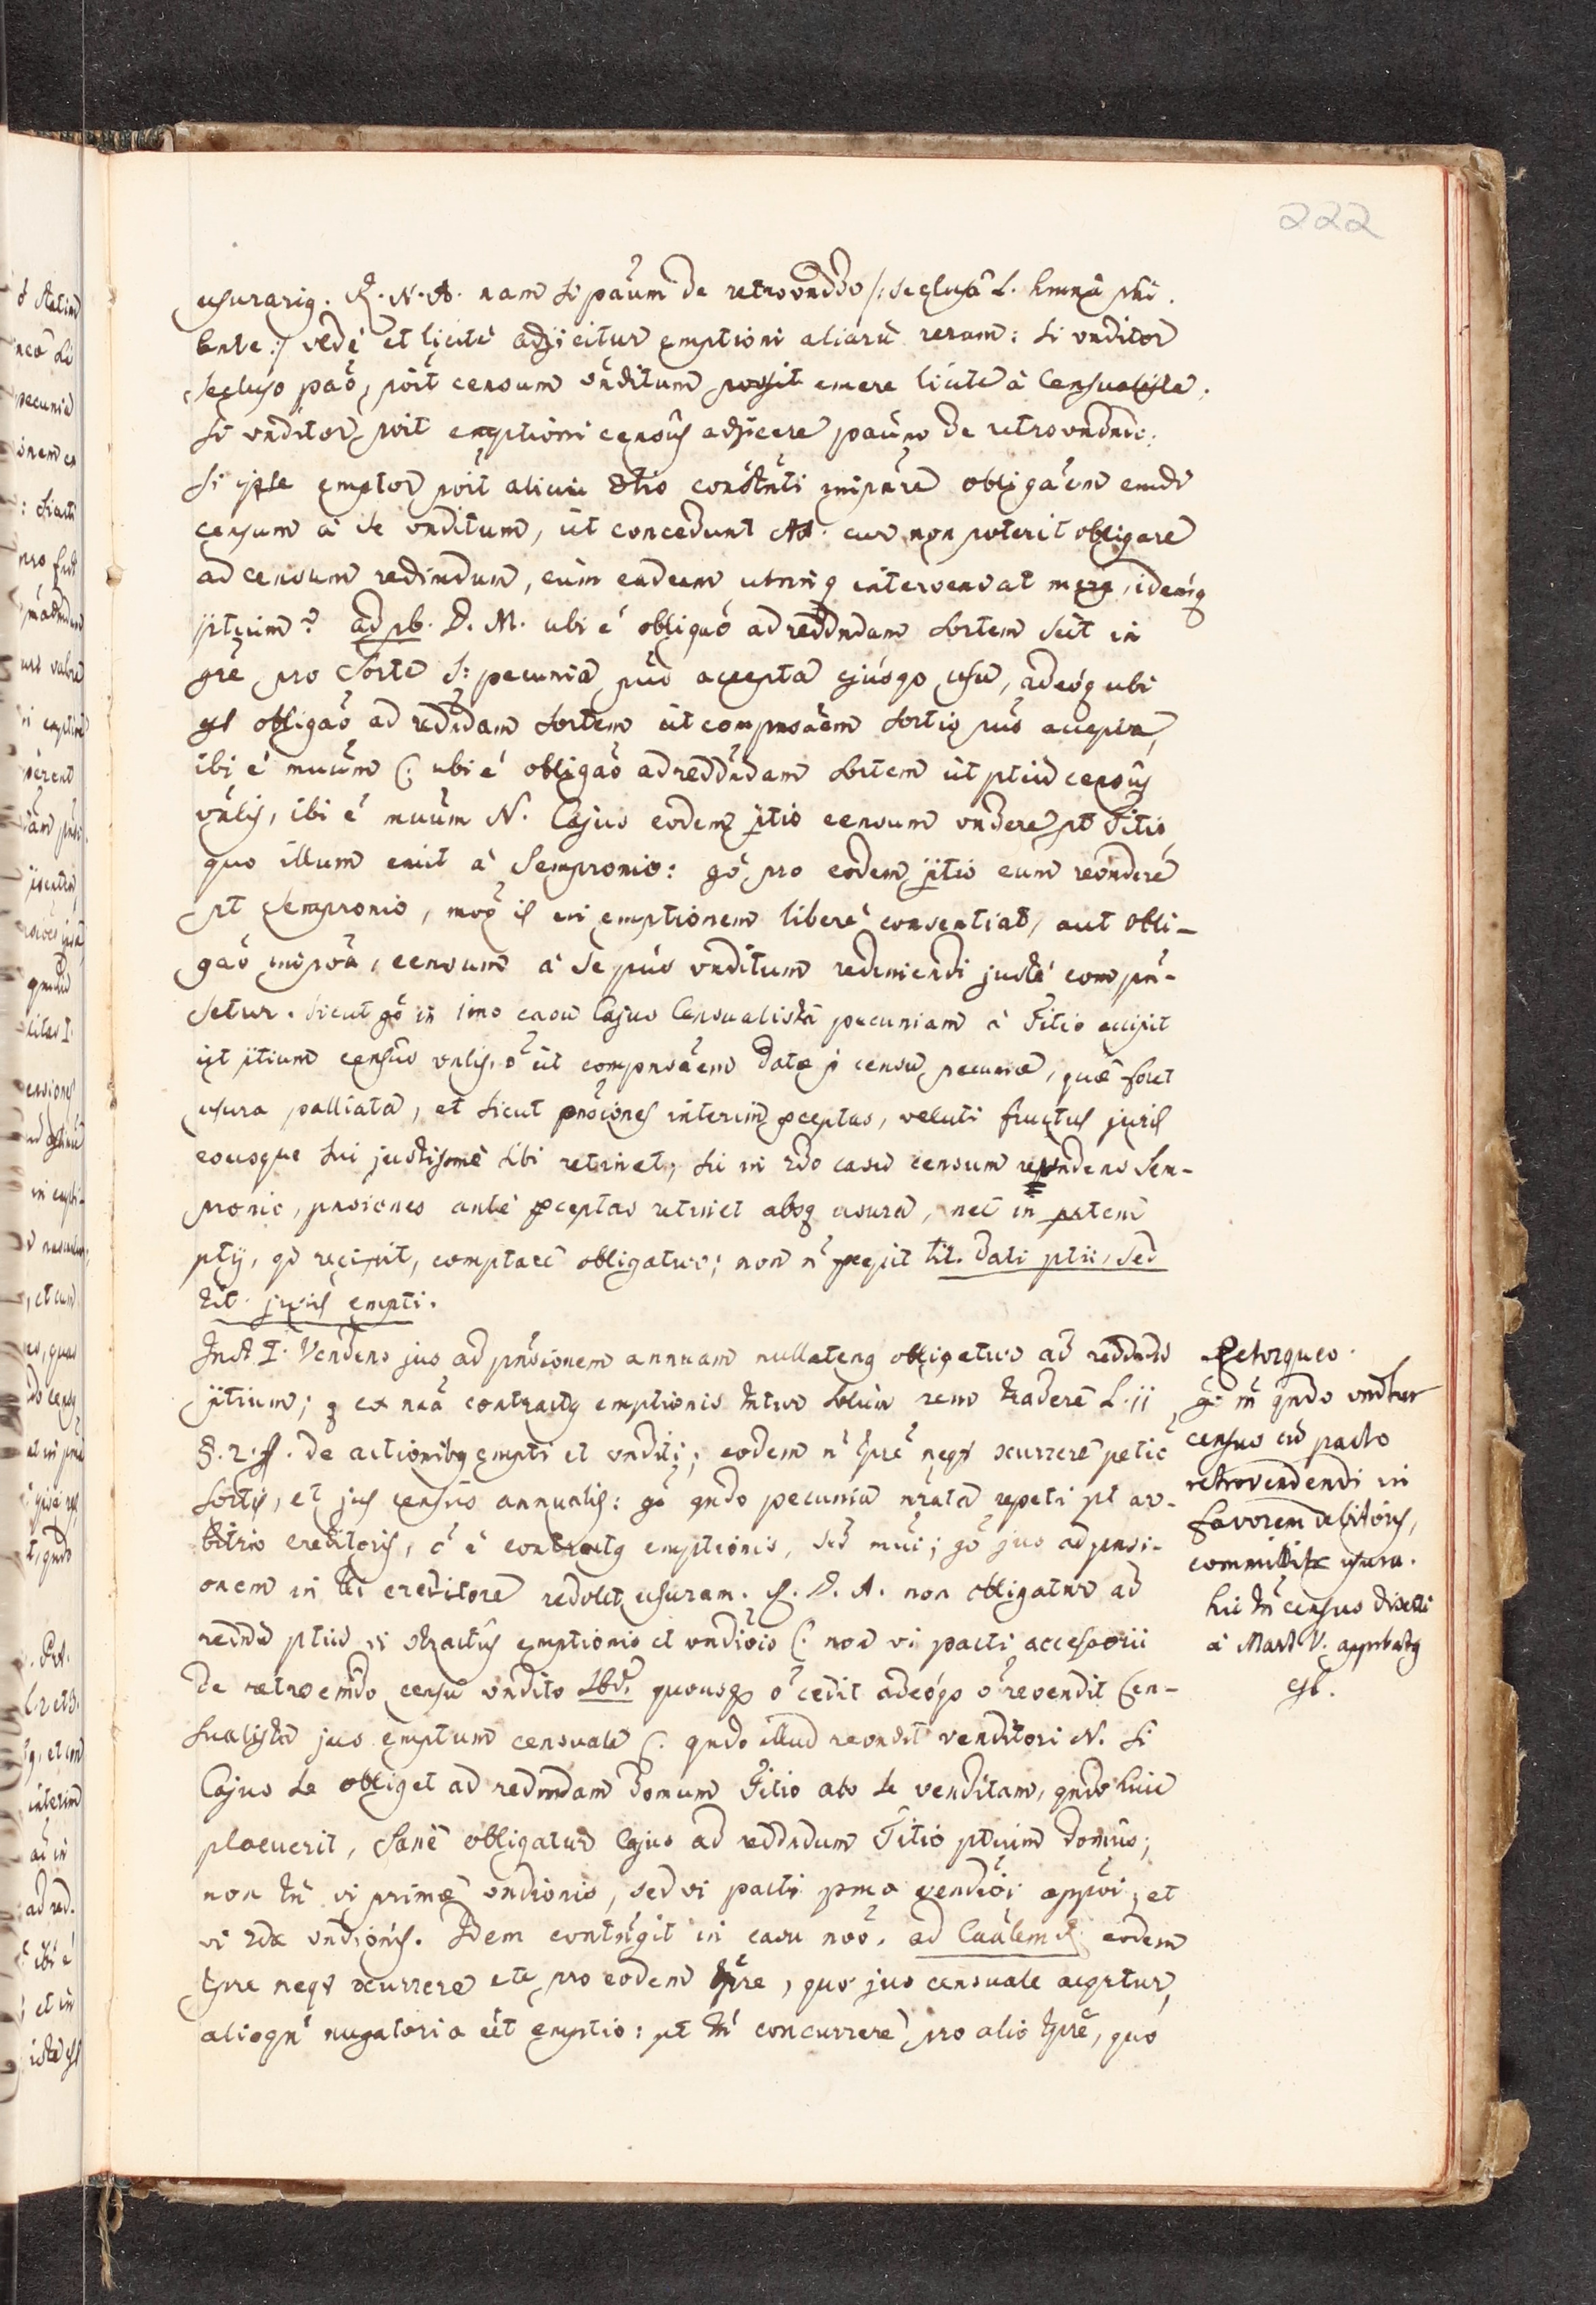 222
usurarig. R. N. A. nam si paum de retrovnddo /: seclusa L. hmna phi.
bnte :/ vede et licite adjicitur emptioni aliaru rerum: si vnditor
secluso pao, poit censum vnditum possit emere licite à Censualista;
si vnditor poit emptioni censûs adjicere paum de retrovndndo:
si ipse emptor poit alicui 3tio constnti imponre obligaem emdi
censum à se vnditum, ut concedunt AA. cur non poterit obligare
ad censum redimdum, cum eadem utrinq interveniat merx, idemq
ptium? ad pb. D. M. ubi é obligaó ad reddndam sortem seit in
gre pro sorte s: pecunia piis accepta ejusqo usu, adeoq ubi
est obligaó ad reddndam sortem ut compnsaem sortis piis accepta,
ibi é muum C: ubi é obligaó ad reddndam sortem ut ptium censûs
vnlis, ibi é muum N. Cajus eodem ptio censum vndere pt Titio
quo illum emit à Sempronio: go pro eodem ptio eum revndere
pt Sempronio, moo is in emptionem libere consentiat, aut obli-
gaó imposa, censum à se piis vnditum redimendi juste compn-
setur. Sicut go in 1mo casu Cajus Censualista pecuniam à Titio accipit
ut ptium censûs vnlis, ó ut compnsaem datae p censu pecuniae, quae foret
usura palliata, et sicut pnsiones interim pceptas, veluti fructus juris
eousque sui justissime sibi retinet; sic in 2do casu censum revndens Sem-
pronio, pnsiones ante pceptas retinet absq usura, nec in partem
ptij, qd recipit, computare obligatur; non n pcepit tit. dati ptii, sed
tit. juris empti.
Inst I. Vendens jus ad pnsionem annuam nullatenq obligatur ad reddndum
ptium; q ex naa contractq emptionis tntur solum rem tradere L. 11
§. 2. ff. de actionibq empti et vnditi; eodem n tpre neqt ocurrere petio
sortis, et jus censûs annualis: go qndo pecunia nrata repeti pt ar-
bitrio creditoris, ó é contractq emptionis, sed mui; go jus ad pnsi-
onem in tli creditore redolet usuram. R. D. A. non obligatur ad
reddndu ptiu vi otractûs emptionis et vndiois C. non vi pacti accessorii
de retroemdo censu vndito Sbd. quousqo ó cedit adeoqo ó revendit Cen-
sualista jus emptum censuale C. qndo illud revndit venditori N. Si
Cajus se obliget ad redimdam domum Titio abs se venditam, qndo huic
placuerit, sane obligatur Cajus ad reddndum Titio ptium domûs;
non tn vi primae vndionis, sed vi pacti pmo vendioi appoi, et
vi 2dae vndionis. Idem contngit in casu noo. ad Caualem R. eodem
tpre neqt ocurrere etc pro eodem tpre, quo jus censuale acqrtur,
alioqn nugatoria eit emptio: pt tn concurrere pro alio tpre, quo
Retorqueo.
go in qndo vnditur
census cum pacto
retrovendendi in
favorem debitoris,
committitur usura.
hic tn census diserte
à Mart V. approbatq
est.